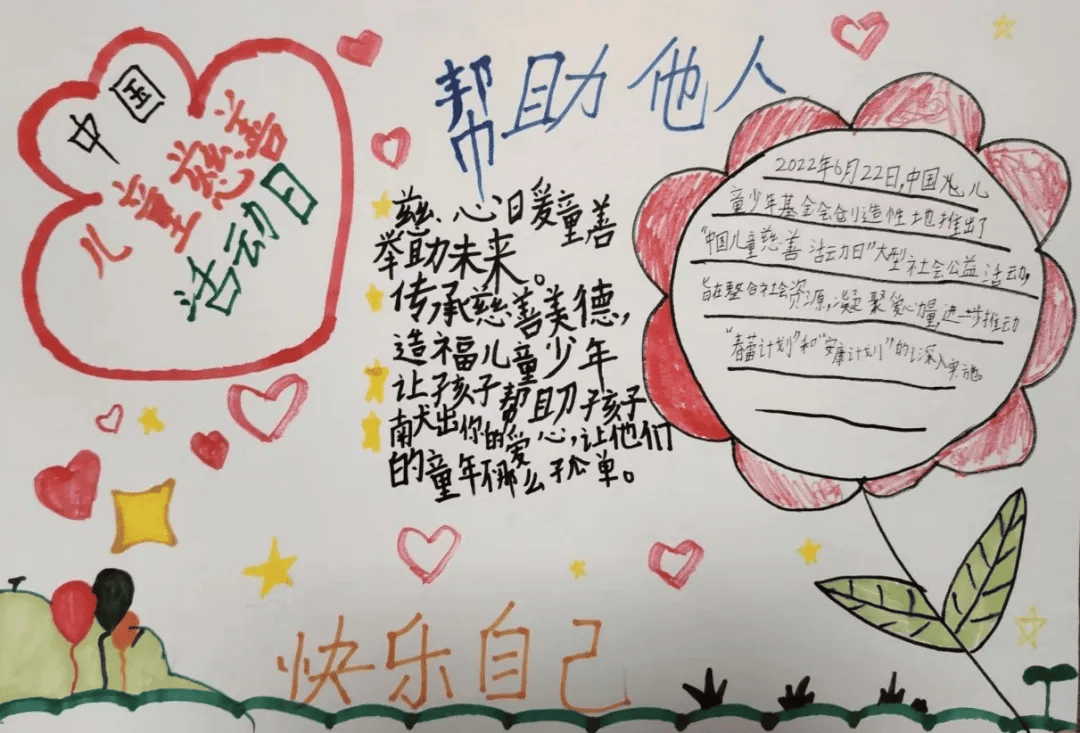 中国
儿童慈善
活动日
帮助他人
慈心日爱童善
举助未来。
传承慈善美德，
造福儿童少年
让孩子帮助孩子
献出你的爱心，让他们
的童年不那么孤单。
2022年6月22日，中国儿
童少年基金会创造性地推出了
“中国儿童慈善活动日”大型社会公益活动，
旨在整合社会资源，凝聚爱心量，进一步推动
“春蕾计划”和“安康计划”的深入实施。
快乐自己